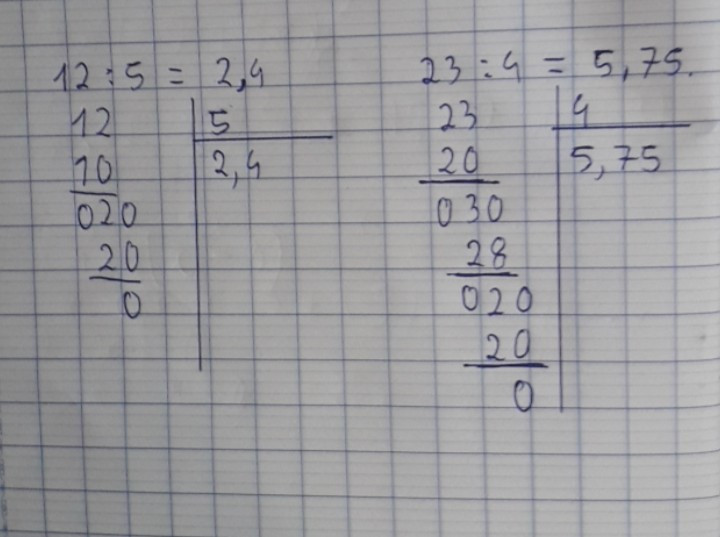 12 : 5 = 2,4
12 5
10 2,4
020
20
0
23 : 4 = 5,75.
23 4
20 5,75
030
28
020
20
0